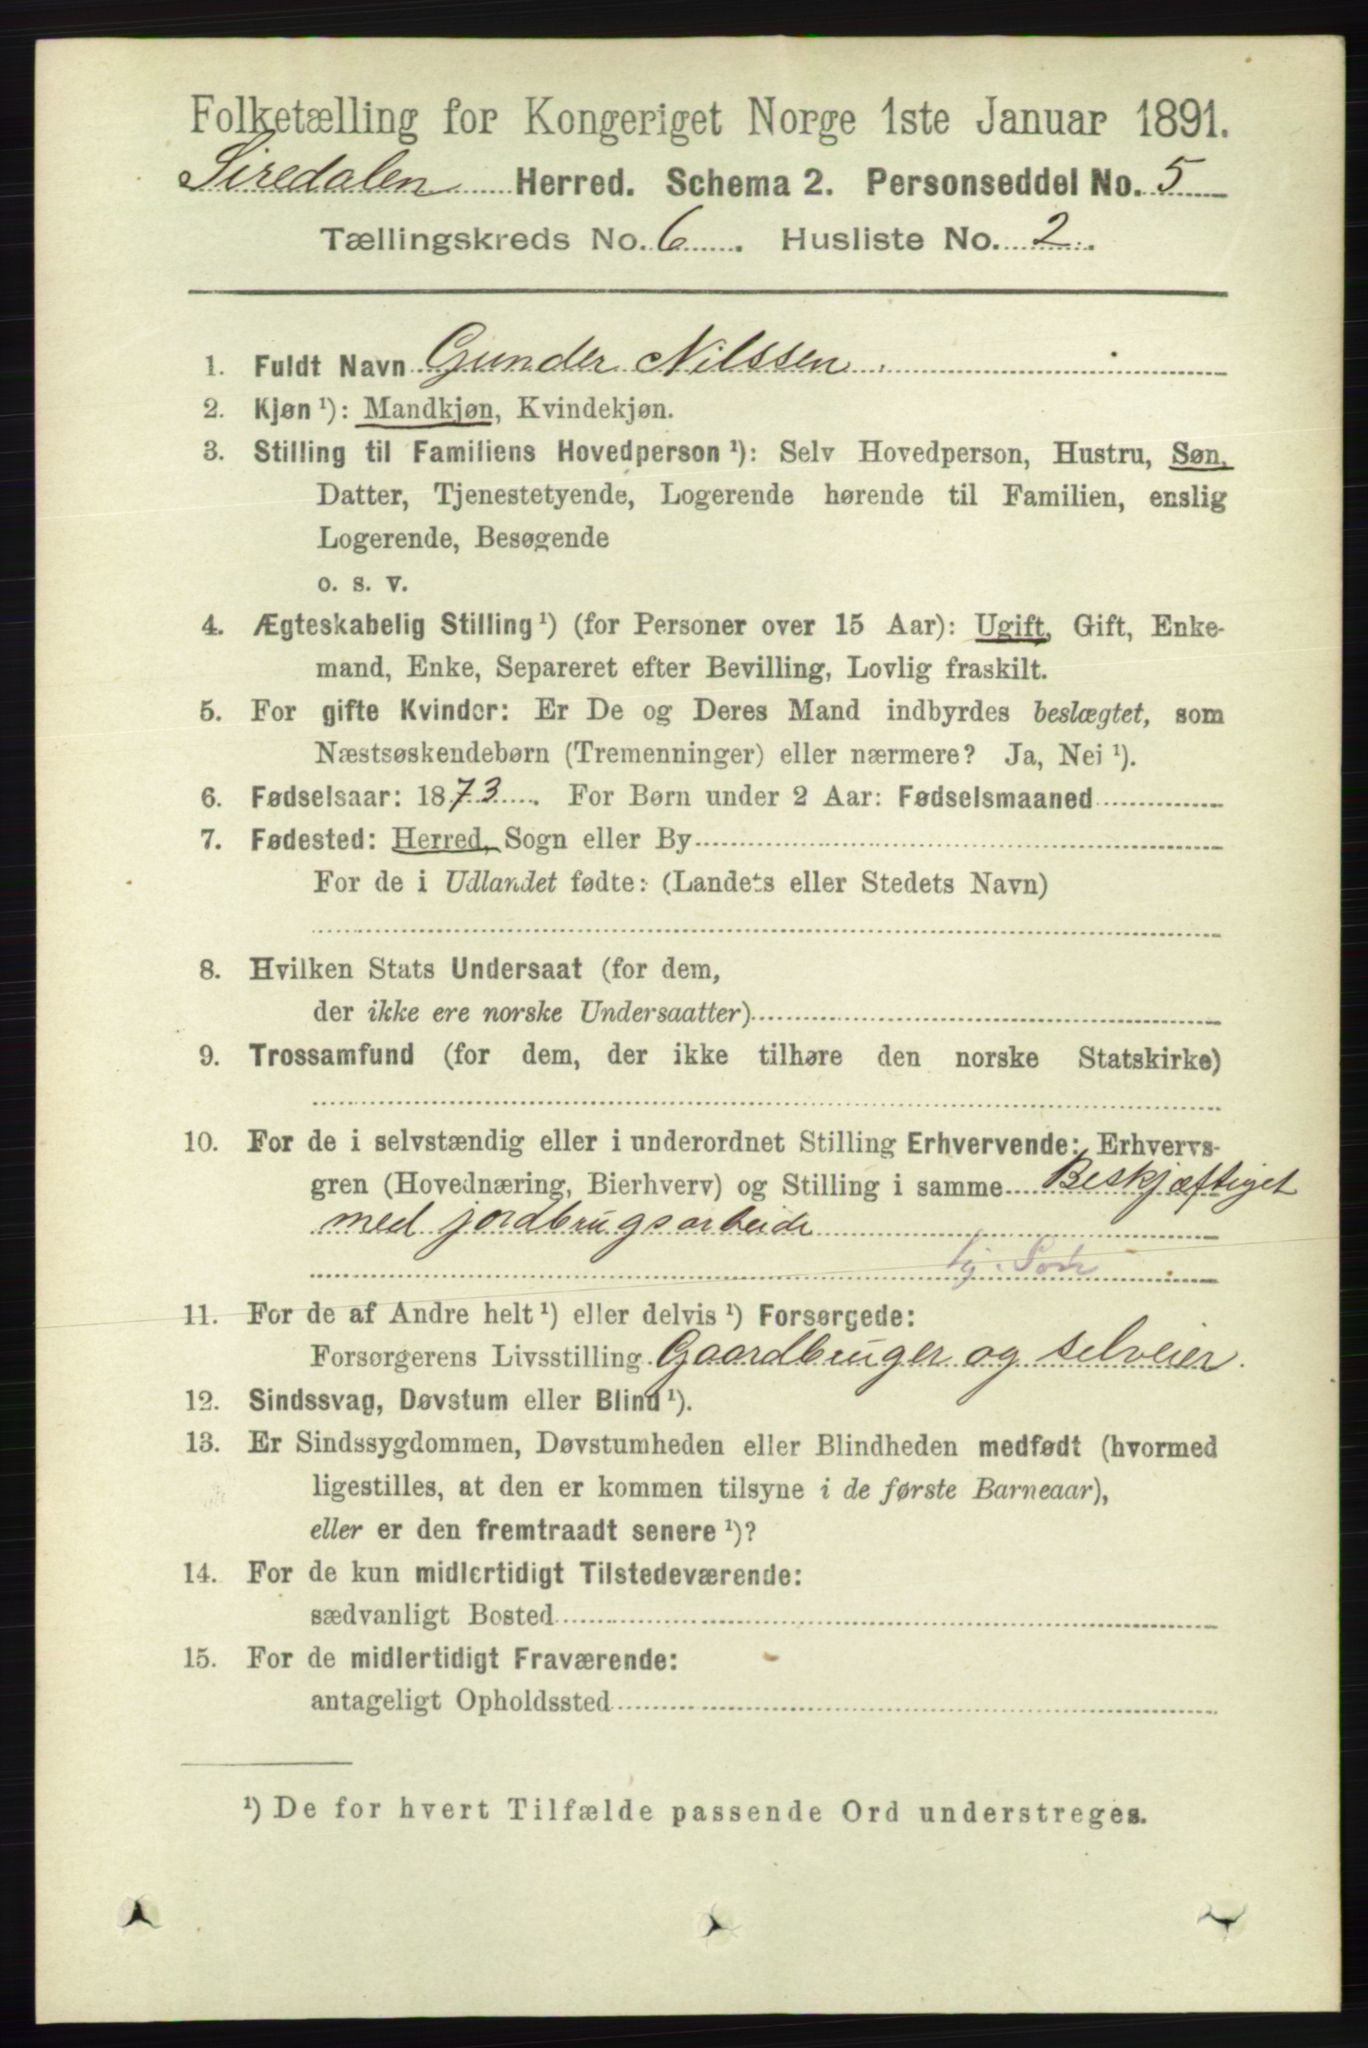 Folketælling for Kongeriget Norge 1ste Januar 1891.
Siredalen Herred. Schema 2. Personseddel No. 5
Tællingskreds No. 6. Husliste No. 2.
1. Fuldt Navn Gunder Nilssen
2. Kjøn ¹): Mandkjøn, Kvindekjøn.
3. Stilling til Familiens Hovedperson ¹): Selv Hovedperson, Hustru, Søn,
Datter, Tjenestetyende, Logerende hørende til Familien, enslig
Logerende, Besøgende
o. s. v.
4. Ægteskabelig Stilling ¹) (for Personer over 15 Aar): Ugift, Gift, Enke-
mand, Enke, Separeret efter Bevilling, Lovlig fraskilt.
5. For gifte Kvinder: Er De og Deres Mand indbyrdes beslægtet, som
Næstsøskendebørn (Tremenninger) eller nærmere? Ja, Nei ¹).
6. Fødselsaar: 1873. For Børn under 2 Aar: Fødselsmaaned
7. Fødested: Herred, Sogn eller By
For de i Udlandet fødte: (Landets eller Stedets Navn)
8. Hvilken Stats Undersaat (for dem,
der ikke ere norske Undersaatter)
9. Trossamfund (for dem, der ikke tilhøre den norske Statskirke)
10. For de i selvstændig eller i underordnet Stilling Erhvervende: Erhvervs-
gren (Hovednæring, Bierhverv) og Stilling i samme Beskjæftiget
med jordbrugsarbeide
Søn
11. For de af Andre helt ¹) eller delvis ¹) Forsørgede:
Forsørgerens Livsstilling Gaardbruger og selveier.
12. Sindssvag, Døvstum eller Blind ¹).
13. Er Sindssygdommen, Døvstumheden eller Blindheden medfødt (hvormed
ligestilles, at den er kommen tilsyne i de første Barneaar),
eller er den fremtraadt senere ¹)?
14. For de kun midlertidigt Tilstedeværende:
sædvanligt Bosted
15. For de midlertidigt Fraværende:
antageligt Opholdssted
¹) De for hvert Tilfælde passende Ord understreges.